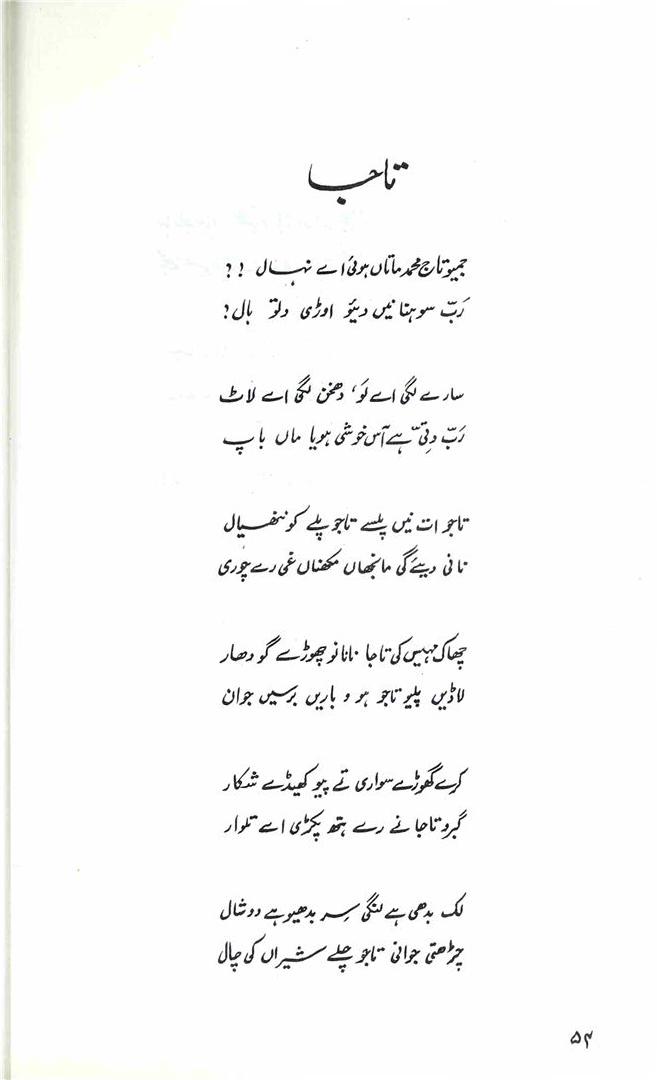 تاجا
جمیو تاج محمد ماتاں ہوئی اے نہال !؟
رَبّ سوہنا نیں دیئو اوڑی دلو بال؟
سارے لگی اے لَو، دھخن لگی اے لاٹ
رَبّ دِتیّ ہے آس خوشی ہویا ماں باپ
تاجو ات نیں پلسے تاجو پلے کو ننھیال
نانی دیئے گی مانجھاں مکھناں غی رے چوری
چھاک مہیں کی تاجا نانا نو چھوڑے گو دھار
لاڈیں پلیو تاجو ہو و باریں برسیں جوان
کرے گھوڑے سواری تے پیو کھیڈے شکار
گبرو تاجا نے رے ہتھ پکڑی اے تلوار
لک بدھی ہے لنگی سِر بدھیو ہے دوشال
چڑھتی جوانی تاجو چلے شیراں کی چال
۵۴